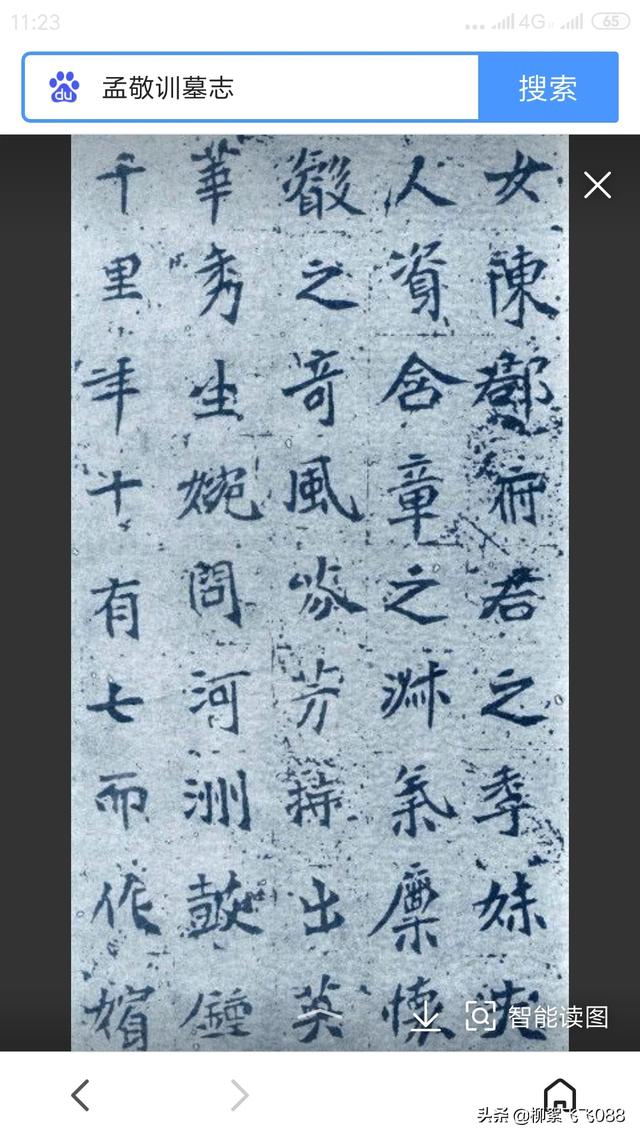 11:23
4G
65
孟敬训墓志
搜索
女陳郡府君之季妹夫
人資含章之淑氣稟懷
叡之奇風芬芳特出英
華秀生婉問河洲鼓鍾
千里年十有七而作嬪
智能读图
头条 @柳絮飞飞088